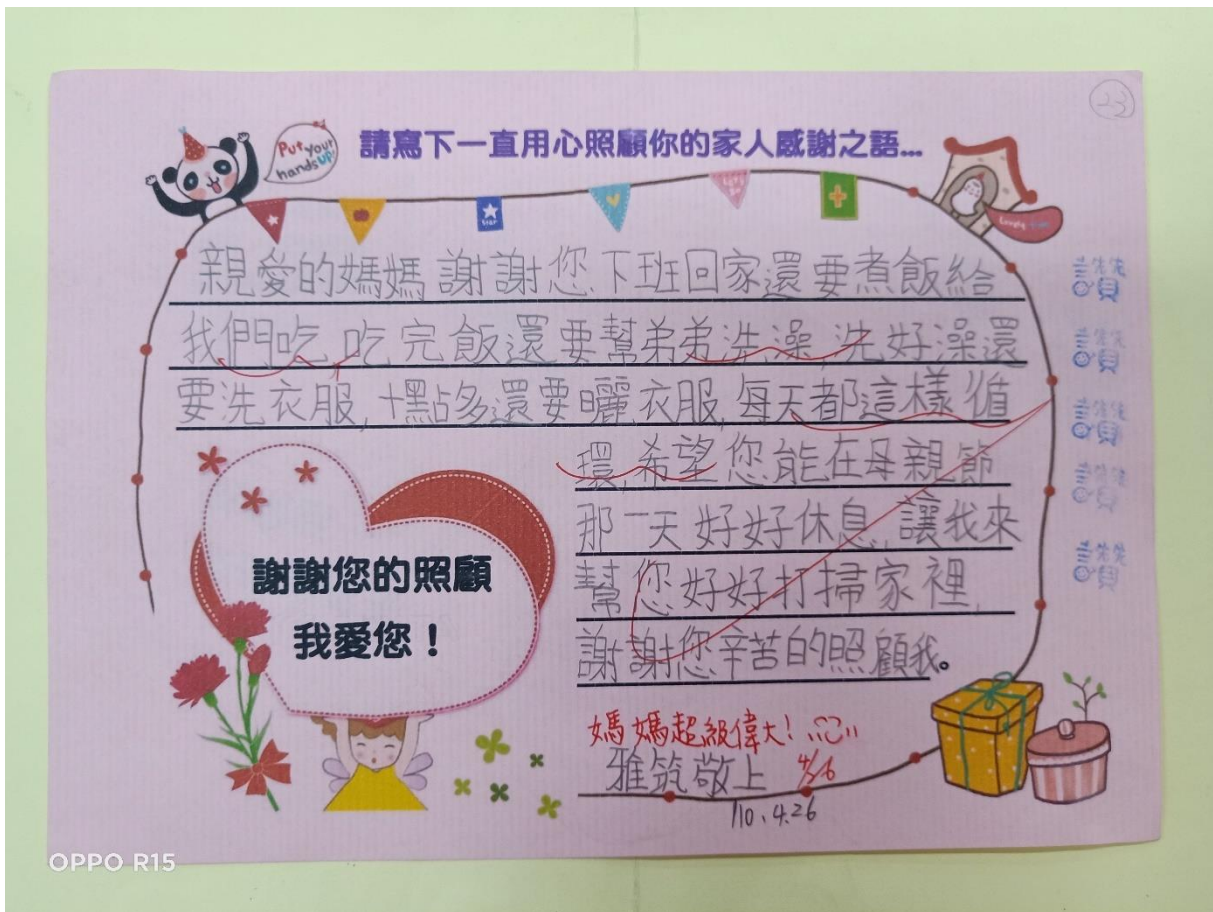 23
請寫下一直用心照顧你的家人感謝之語...
Put your
hands UP!
star
親愛的媽媽謝謝您下班回家還要煮飯給
我們吃,吃完飯還要幫弟弟洗澡,洗好澡還
要洗衣服,十點多還要曬衣服,每天都這樣循
環,希望您能在母親節
那一天好好休息,讓我來
幫您好好打掃家裡,
謝謝您辛苦的照顧我。
謝謝您的照顧
我愛您!
媽媽超級偉大!
雅筑敬上
4/26
110.4.26
讚
讚
讚
讚
讚
OPPO R15